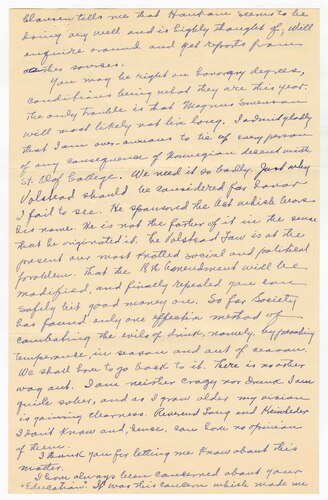 Clausen tells me that Hanson seems to be
doing very well and is highly thought of. Will
enquire around and get reports from
other sourses.
You may be right on honorary degrees,
conditions being what they are this year.
The only trouble is that Magnus Swenson
will most likely not live long. I admit gladly
that I am over-anxious to tie up every person
of any consequence of Norwegian descent with
St. Olof College. We need it so badly. Just why
Volstead should be considered for honor
I fail to see. He sponsored the Act which bears
his name. He is not the father of it in the sense
that he originated it. The Volstead Law is at the
present our most mottled social and political
problem. That the 18th Amendment will be
modified, and finally repealed you can
safely bet good money on. So far Society
has found only one effective method of
combating the evils of drink, namely, by preaching
temperance, in season and out of season.
We shall have to go back to it. There is no other
way out. I am neither crazy nor drunk. I am
quite sober, and as I grow older my vision
is gaining clearness. Reverend Tang and
I don't know and, hence, can have no opinion
of them.
I thank you for letting me know about this
matter.
I have always been concerned about your
"Education". It was this concern which made me